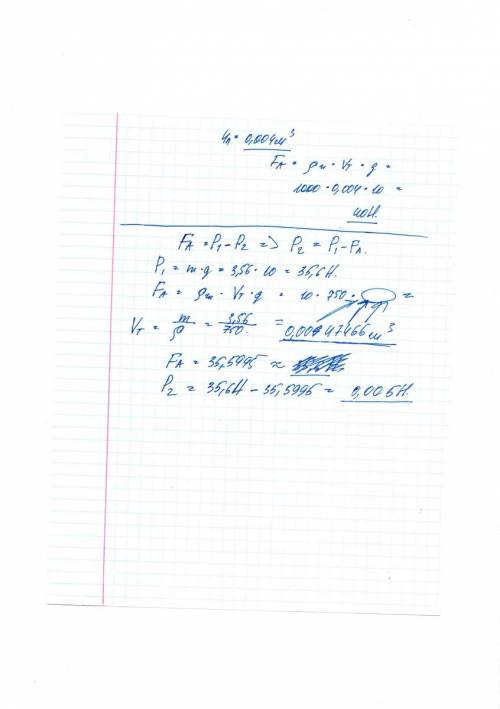 4л = 0,004м³
FA = ρж · Vт · g =
1000 · 0,004 · 10 =
40Н.
FA = P1 - P2 => P2 = P1 - FA.
P1 = m · g = 3,56 · 10 = 35,6Н.
FA = ρж · Vт · g = 10 · 750 · =
Vт = m/ρ = 3,56/750. = 0,00447466м³
FA = 35,5995 ≈
P2 = 35,6Н - 35,5995 = 0,005Н.